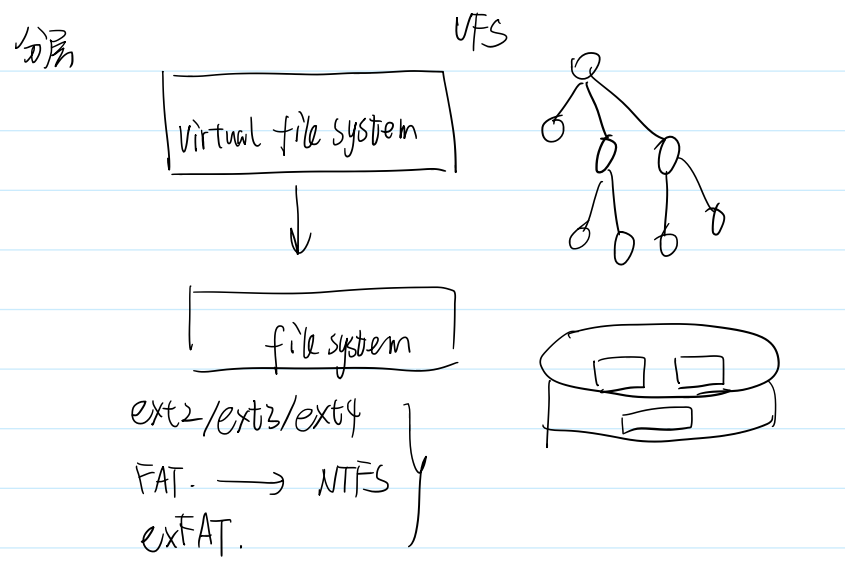 分层
VFS
virtual file system
file system
ext2/ext3/ext4
FAT. → NTFS
exFAT.